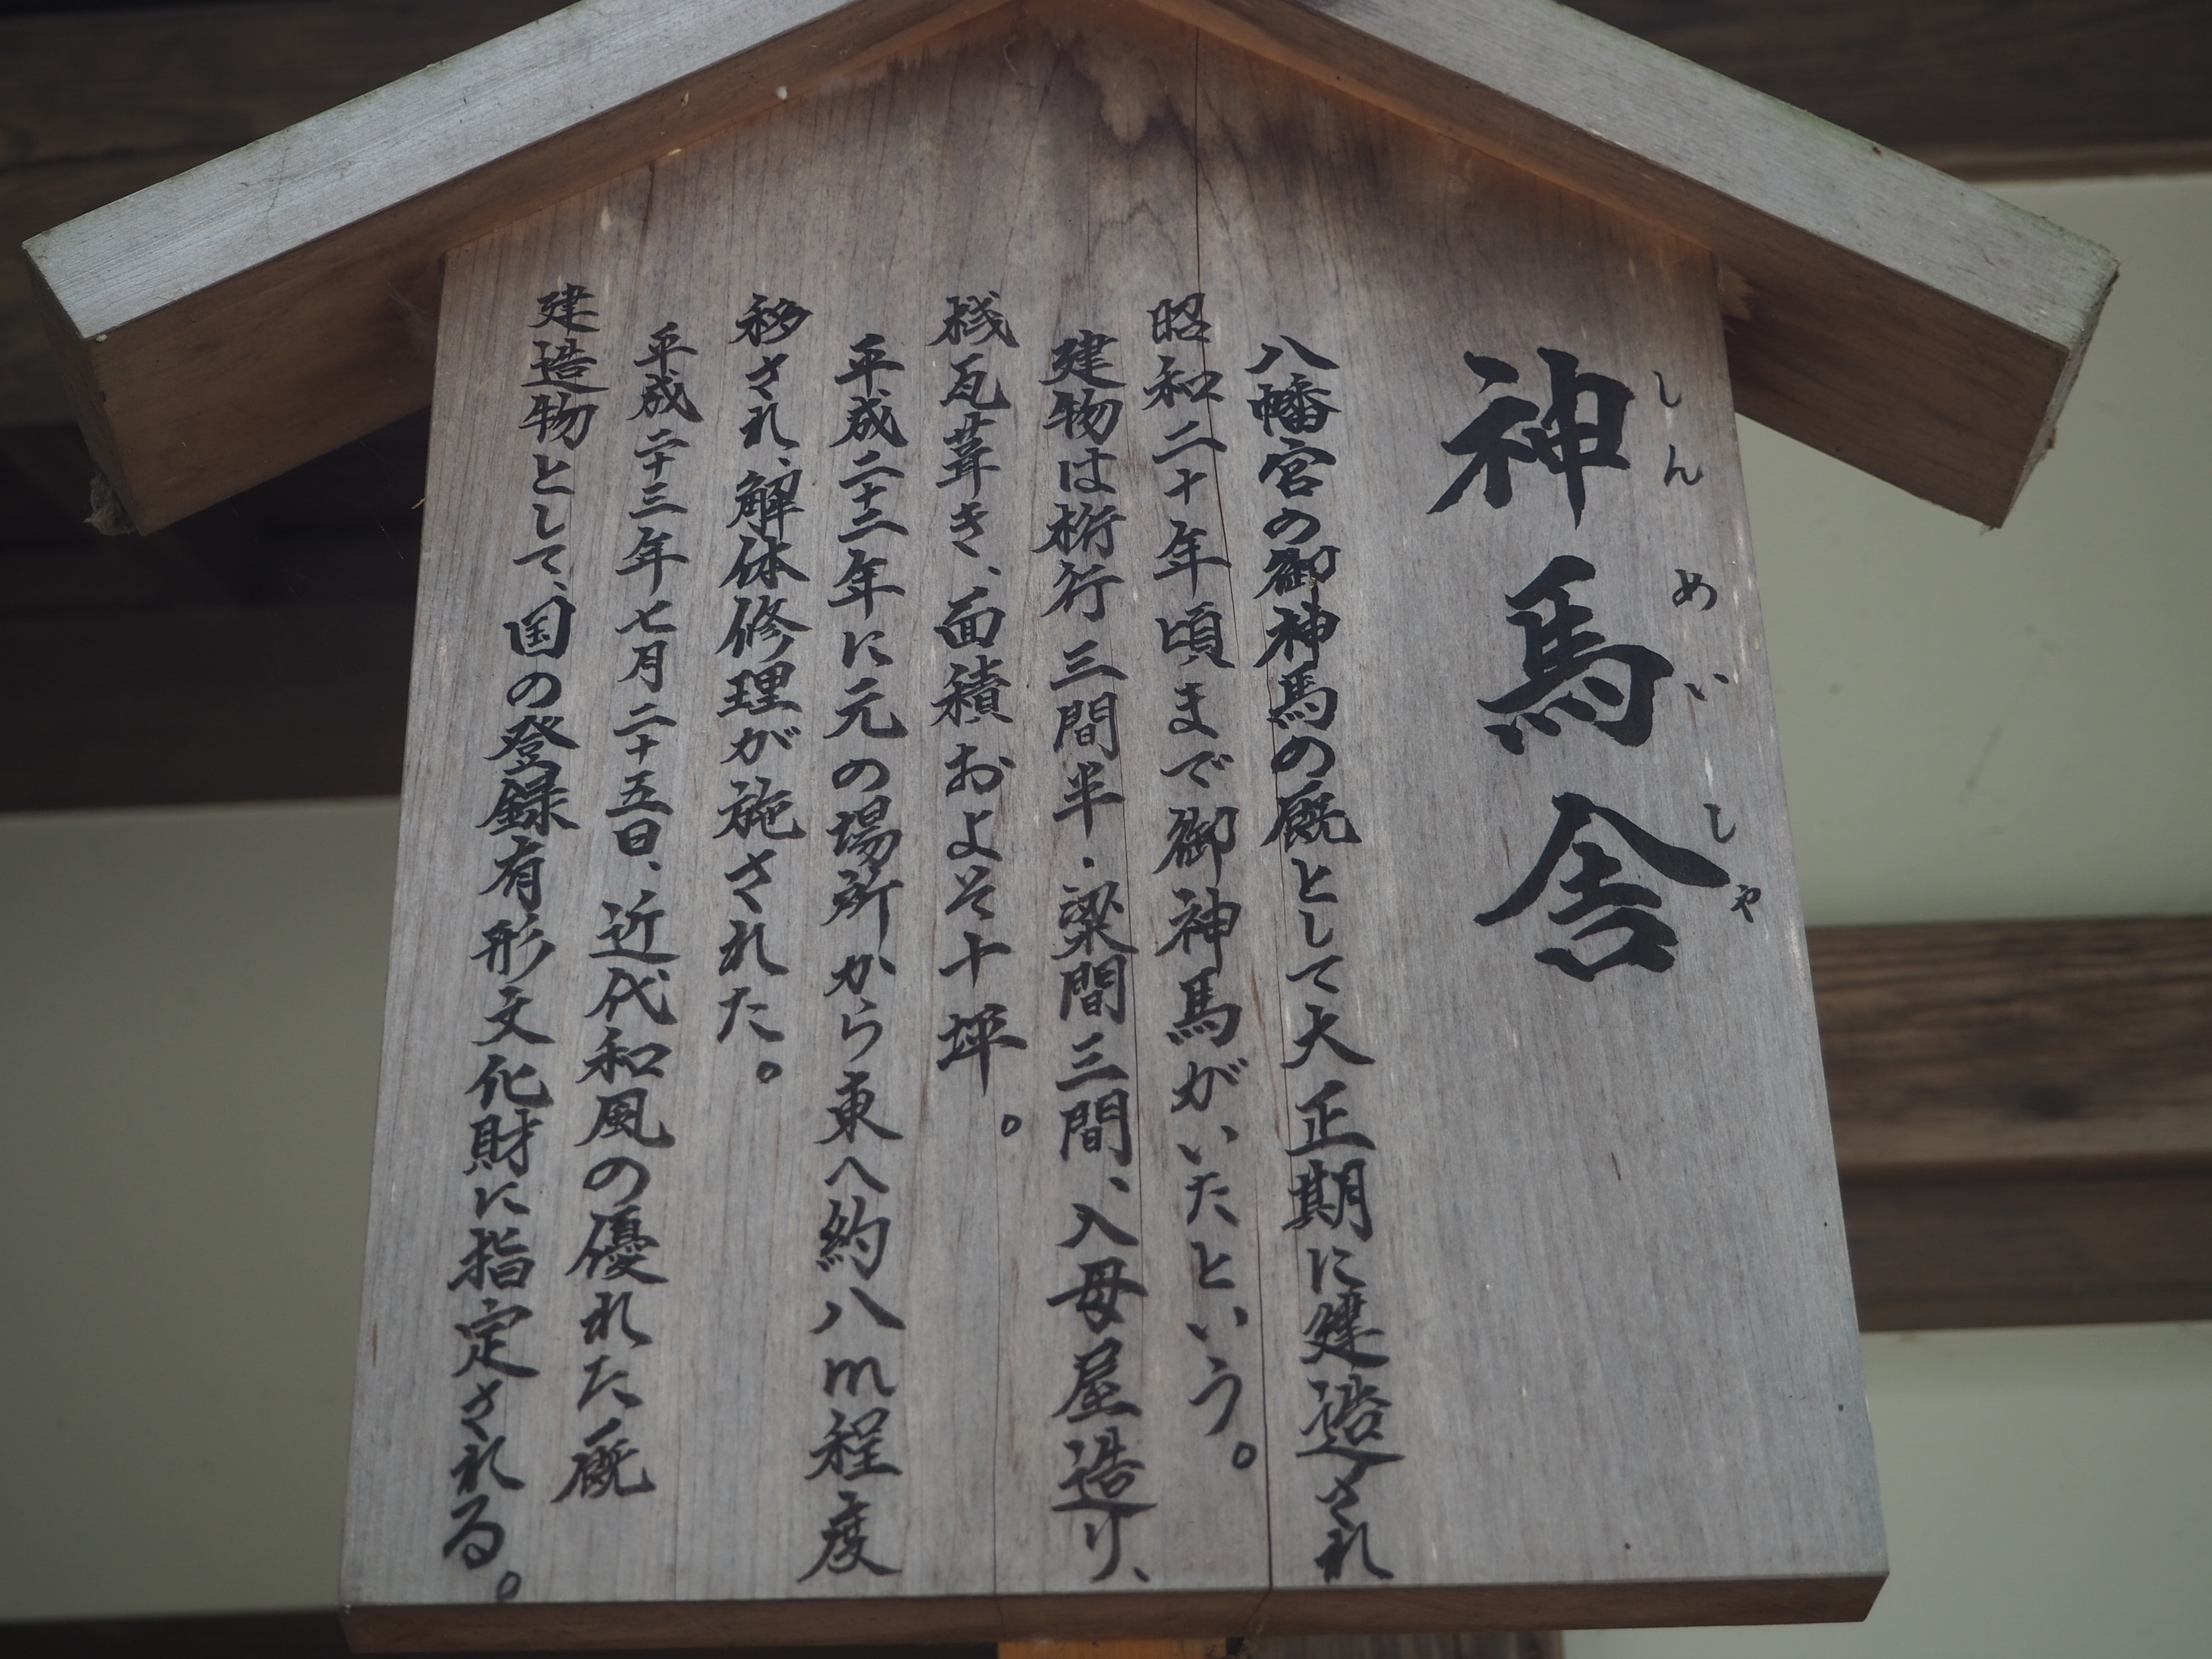 神馬舎
しんめいしゃ
八幡宮の御神馬の厩として大正期に建造され
昭和二十年頃まで御神馬がいたという。
建物は桁行三間半・梁間三間、入母屋造り、
桟瓦葺き、面積およそ十坪。
平成二十二年に元の場所から東へ約八m程度
移され、解体修理が施された。
平成二十三年七月二十五日、近代和風の優れた厩
建造物として、国の登録有形文化財に指定される。